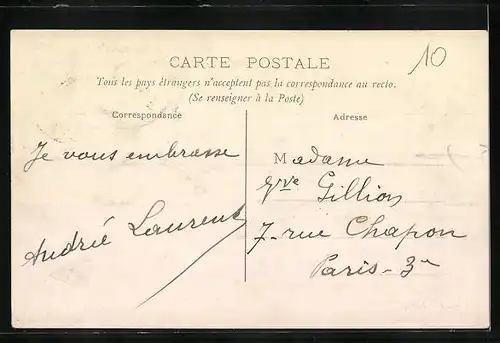 CARTE POSTALE
Tous les pays étrangers n'acceptent pas la correspondance au recto.
(Se renseigner à la Poste)
10
Correspondance
Je vous embrasse
Andrée Laurent
Adresse
Madame
Gillion
7 rue Chapon
Paris - 3e